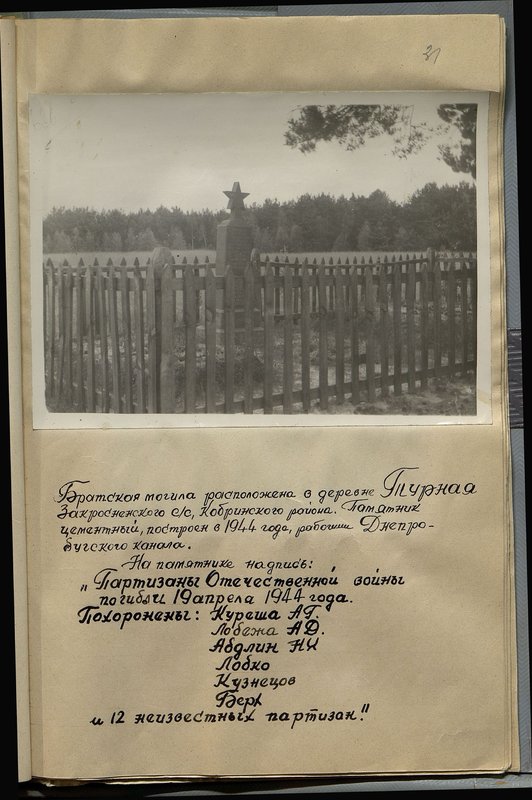 31
Братская могила расположена в деревне Турная
Закросненского с/с, Кобринского района. Памятник
цементный, построен в 1944 годе, рабочими Днепро-
бугского канала.
На памятнике надпись:
„Партизаны Отечественной войны
погибли 19 апрела 1944 года.
Похоронены: Куреша А Г.
Лобежа А Д.
Абдлин Н И
Лобко
Кузнецов
Берх
и 12 неизвестных партизан."